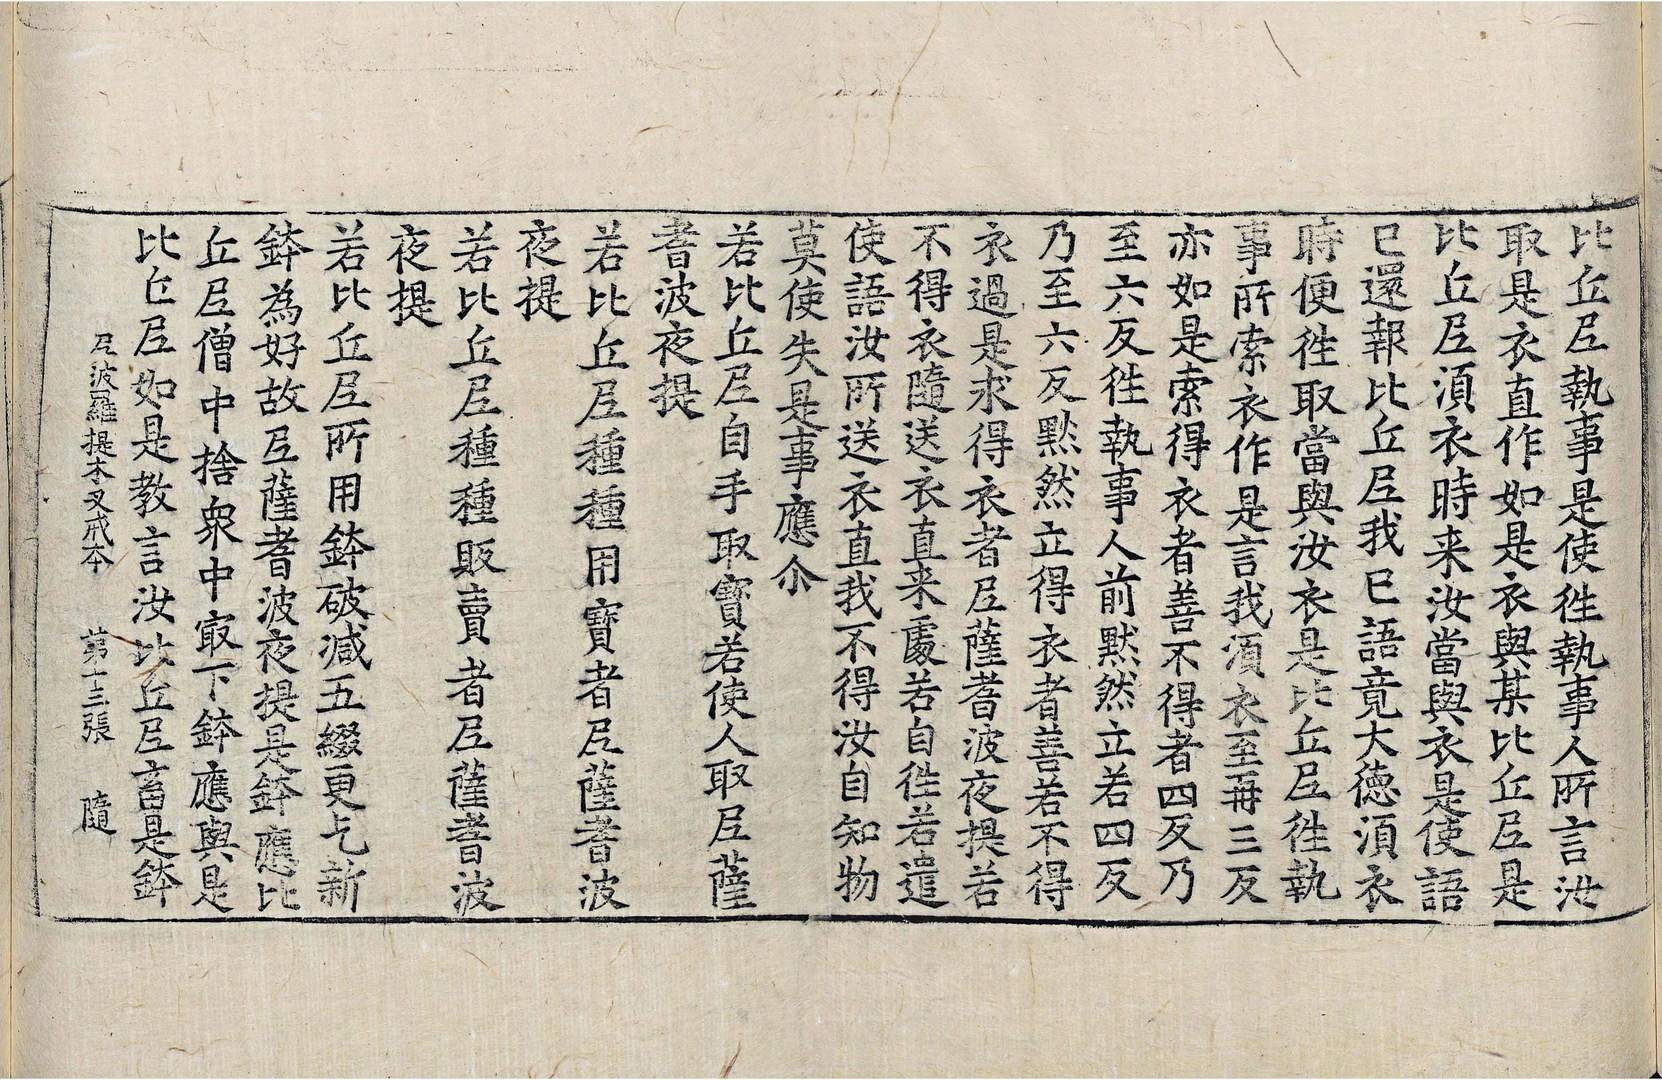 比丘尼執事是使徃執事人所言汝
取是衣直作如是衣與某比丘尼是
比丘尼湏衣時来汝當與衣是使語
已還報比丘尼我已語竟大德湏衣
時便徃取當與汝衣是比丘尼徃執
事所索衣作是言我湏衣至再三反
亦如是索得衣者善不得者四反乃
至六反徃執事人前黙然立若四反
乃至六反黙然立得衣者善若不得
衣過是求得衣者尼薩耆波夜提若
不得衣隨送衣直来處若自徃若遣
使語汝所送衣直我不得汝自知物
莫使失是事應尒
若比丘尼自手取寳若使人取尼薩
耆波夜提
若比丘尼種種用寳者尼薩耆波
夜提
若比丘尼種種販賣者尼薩耆波
夜提
若比丘尼所用鉢破减五綴更乞新
鉢為好故尼薩耆波夜提是鉢應比
丘尼僧中捨衆中㝡下鉢應與是
比丘尼如是教言汝比丘尼畜是鉢
尼波羅提木叉戒本 第十三張 隨